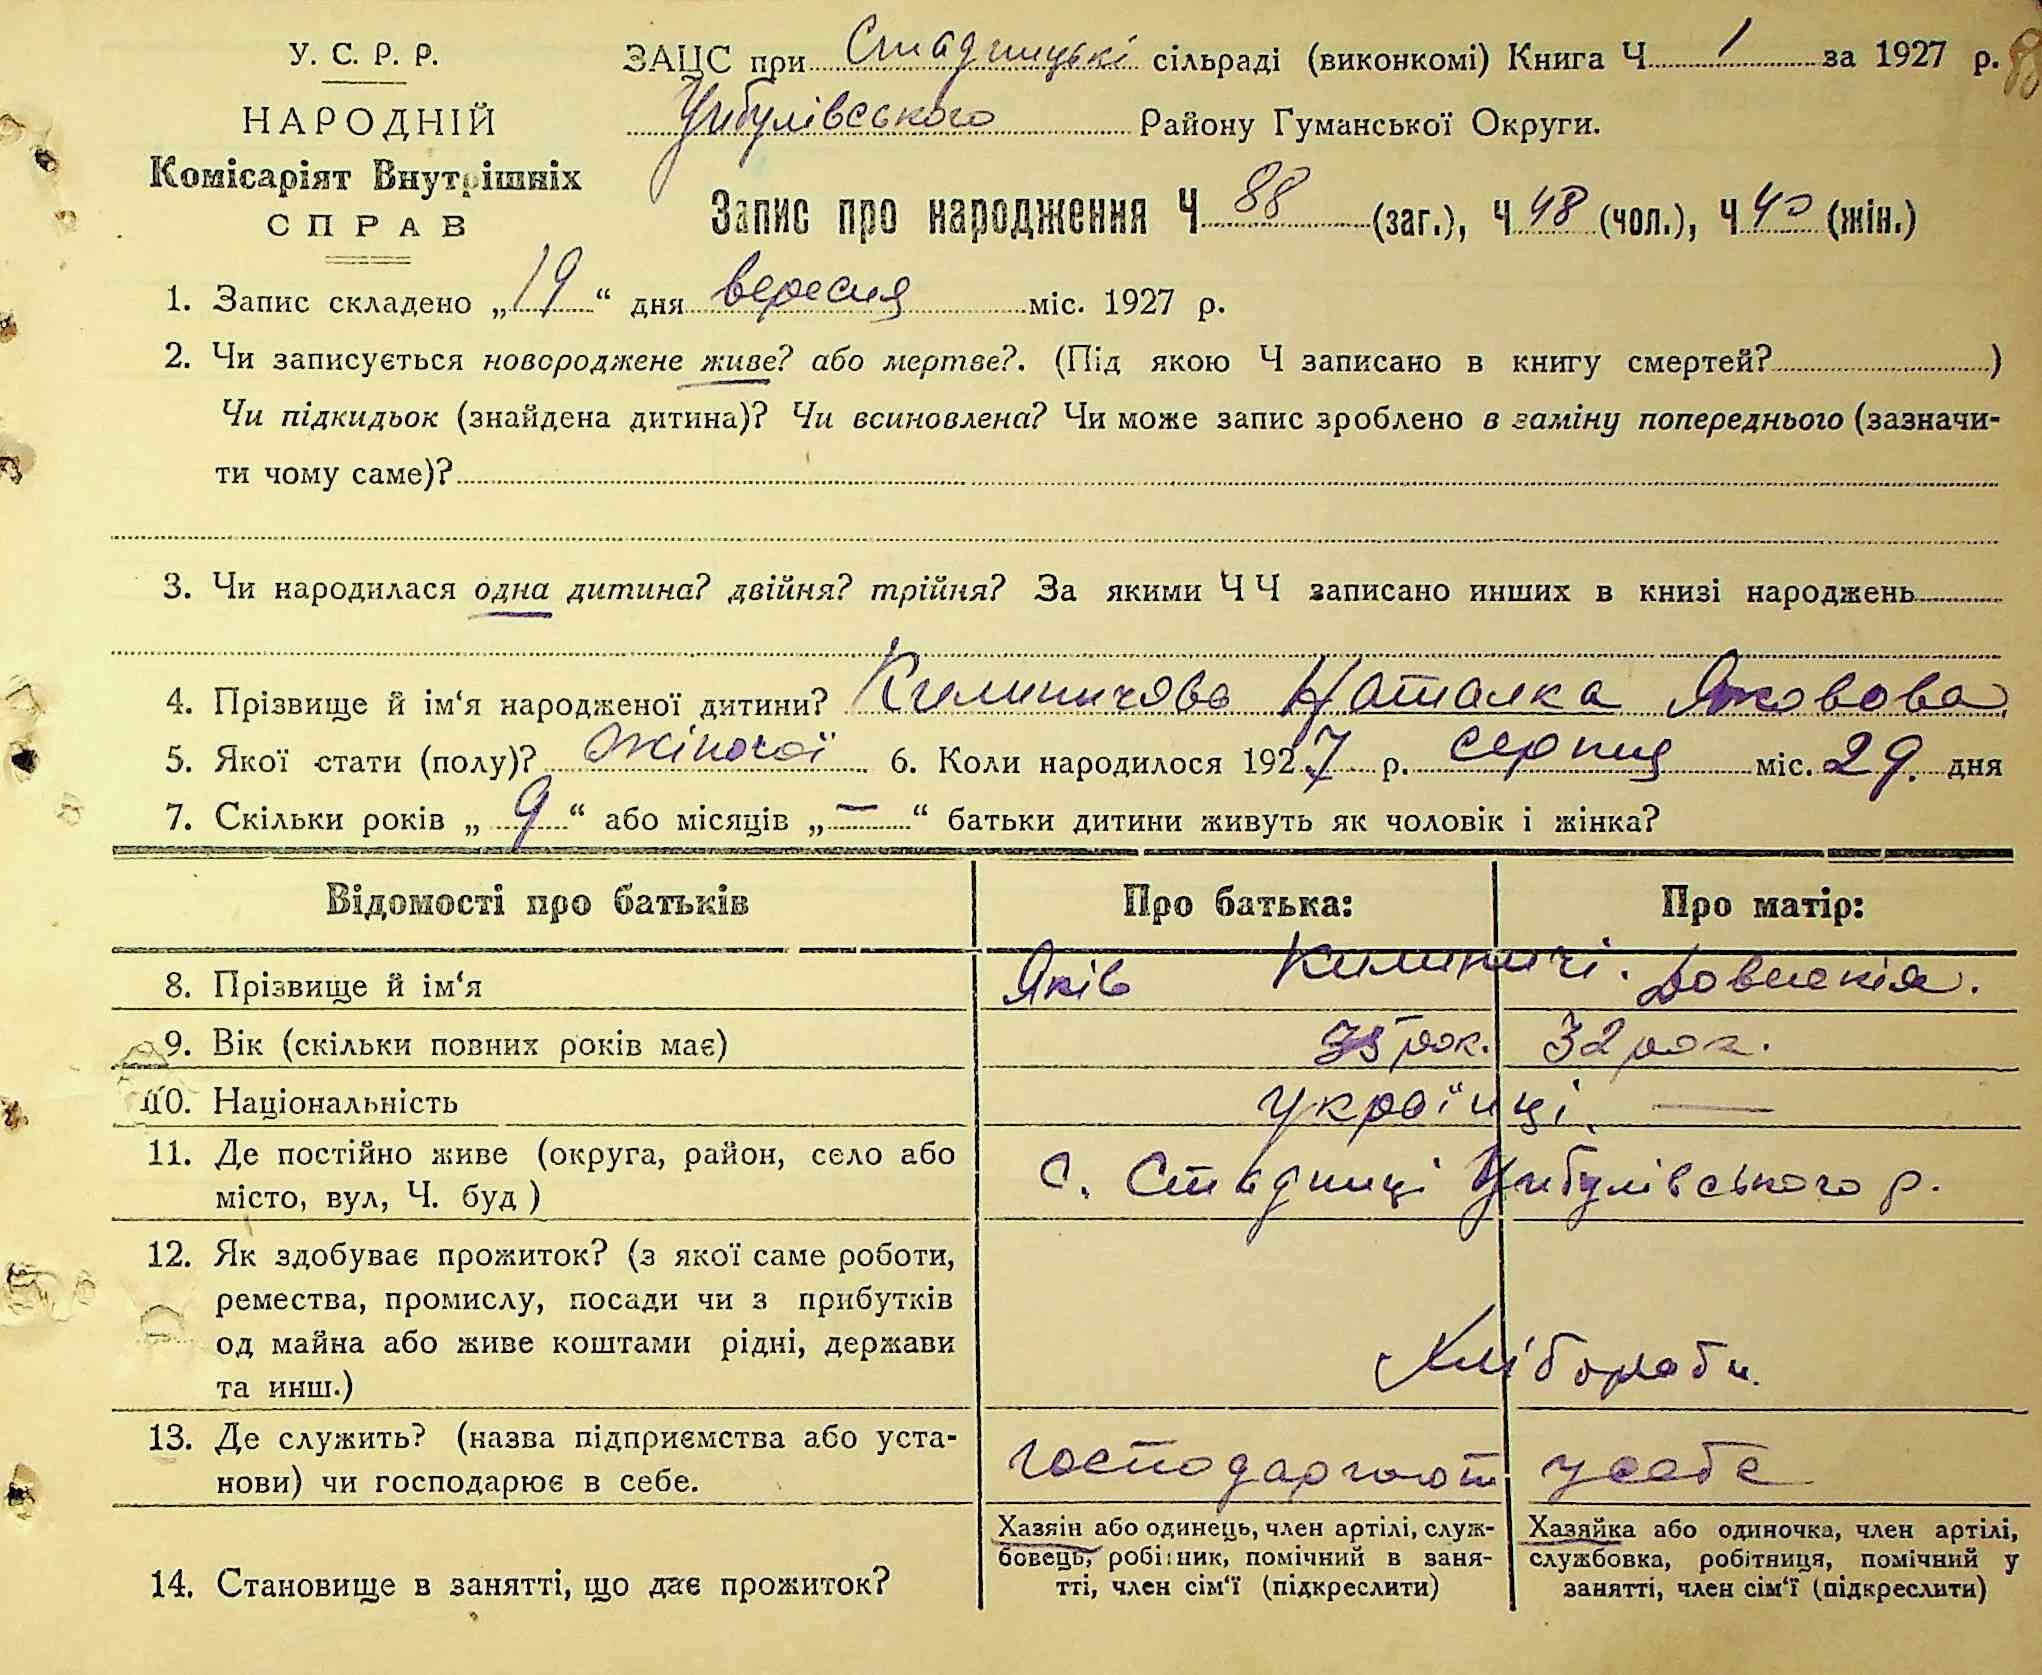 У. С. Р. Р.
НАРОДНІЙ
Комісаріят Внутрішніх
СПРАВ
ЗАЦС при Стадницькі сільраді (виконкомі) Книга Ч 1 за 1927 р.
Цибулівського Району Гуманської Округи.
Запис про народження Ч 88 (заг.), Ч 48 (чол.), Ч 40 (жін.)
1. Запис складено „19“ дня вересня міс. 1927 р.
2. Чи записується новороджене живе? або мертве?. (Під якою Ч записано в книгу смертей? )
Чи підкидьок (знайдена дитина)? Чи всиновлена? Чи може запис зроблено в заміну попереднього (зазначи-
ти чому саме)?
3. Чи народилася одна дитина? двійня? трійня? За якими ЧЧ записано инших в книзі народжень
4. Прізвище й ім‘я народженої дитини? Наталка Яковова
5. Якої стати (полу)? жіночої 6. Коли народилося 1927 р. серпня міс. 29. дня
7. Скільки років „ 9 “ або місяців „ — “ батьки дитини живуть як чоловік і жінка?
Відомості про батьків Про батька: Про матір:
8. Прізвище й ім‘я Яків Килиничі.
9. Вік (скільки повних років має) 35 рок. 32 рок.
10. Національність українці —
11. Де постійно живе (округа, район, село або
місто, вул, Ч. буд ) с. Стадниці Цибулівського р.
12. Як здобуває прожиток? (з якої саме роботи,
ремества, промислу, посади чи з прибутків
од майна або живе коштами рідні, держави
та инш.) Хлібороби.
13. Де служить? (назва підприємства або уста-
нови) чи господарює в себе. господарюют у себе
14. Становище в занятті, що дає прожиток?
Хазяін або одинець, член артілі, служ-
бовець, робінник, помічний в заня-
тті, член сім‘ї (підкреслити)
Хазяйка або одиночка, член артілі,
службовка, робітниця, помічний у
занятті, член сім‘ї (підкреслити)